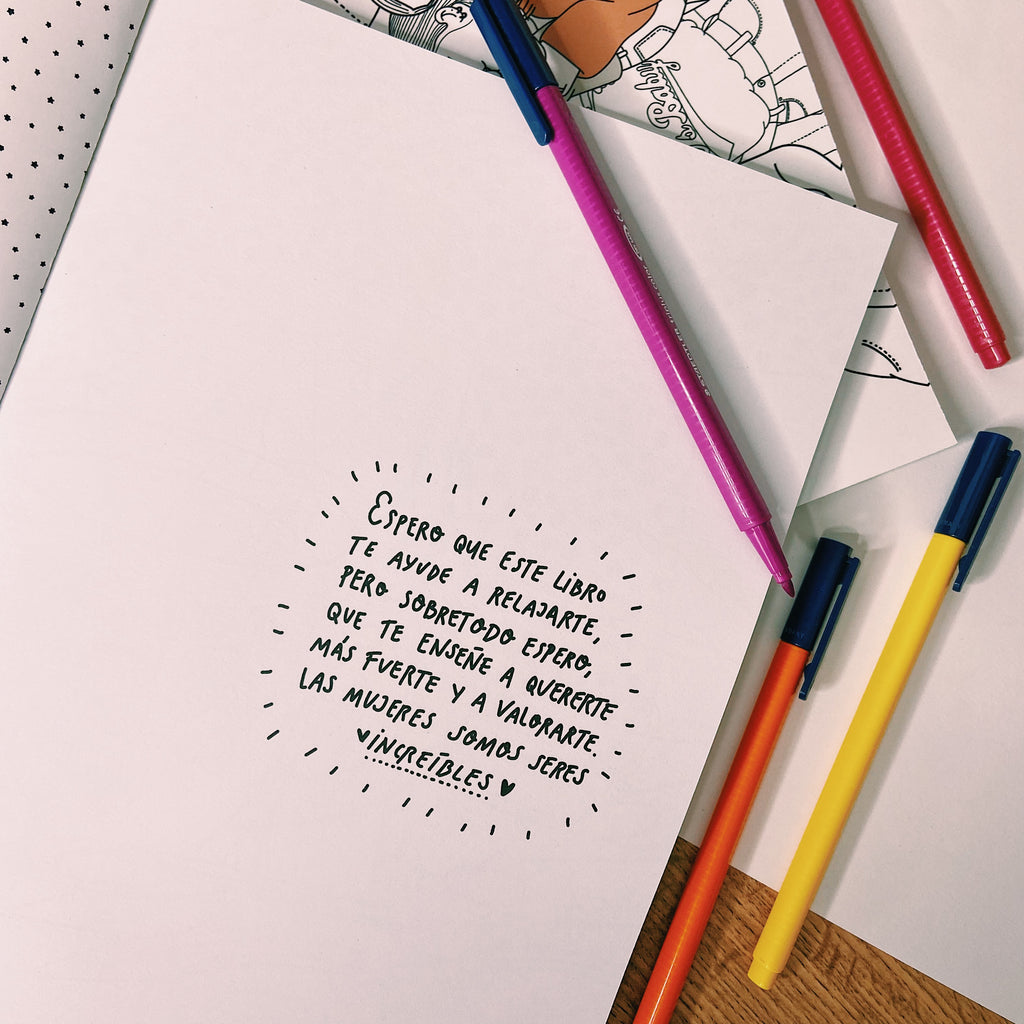 ESPERO QUE ESTE LIBRO
TE AYUDE A RELAJARTE,
PERO SOBRETODO ESPERO,
QUE TE ENSEÑE A QUERERTE
MÁS FUERTE Y A VALORARTE.
LAS MUJERES SOMOS SERES
INCREÍBLES